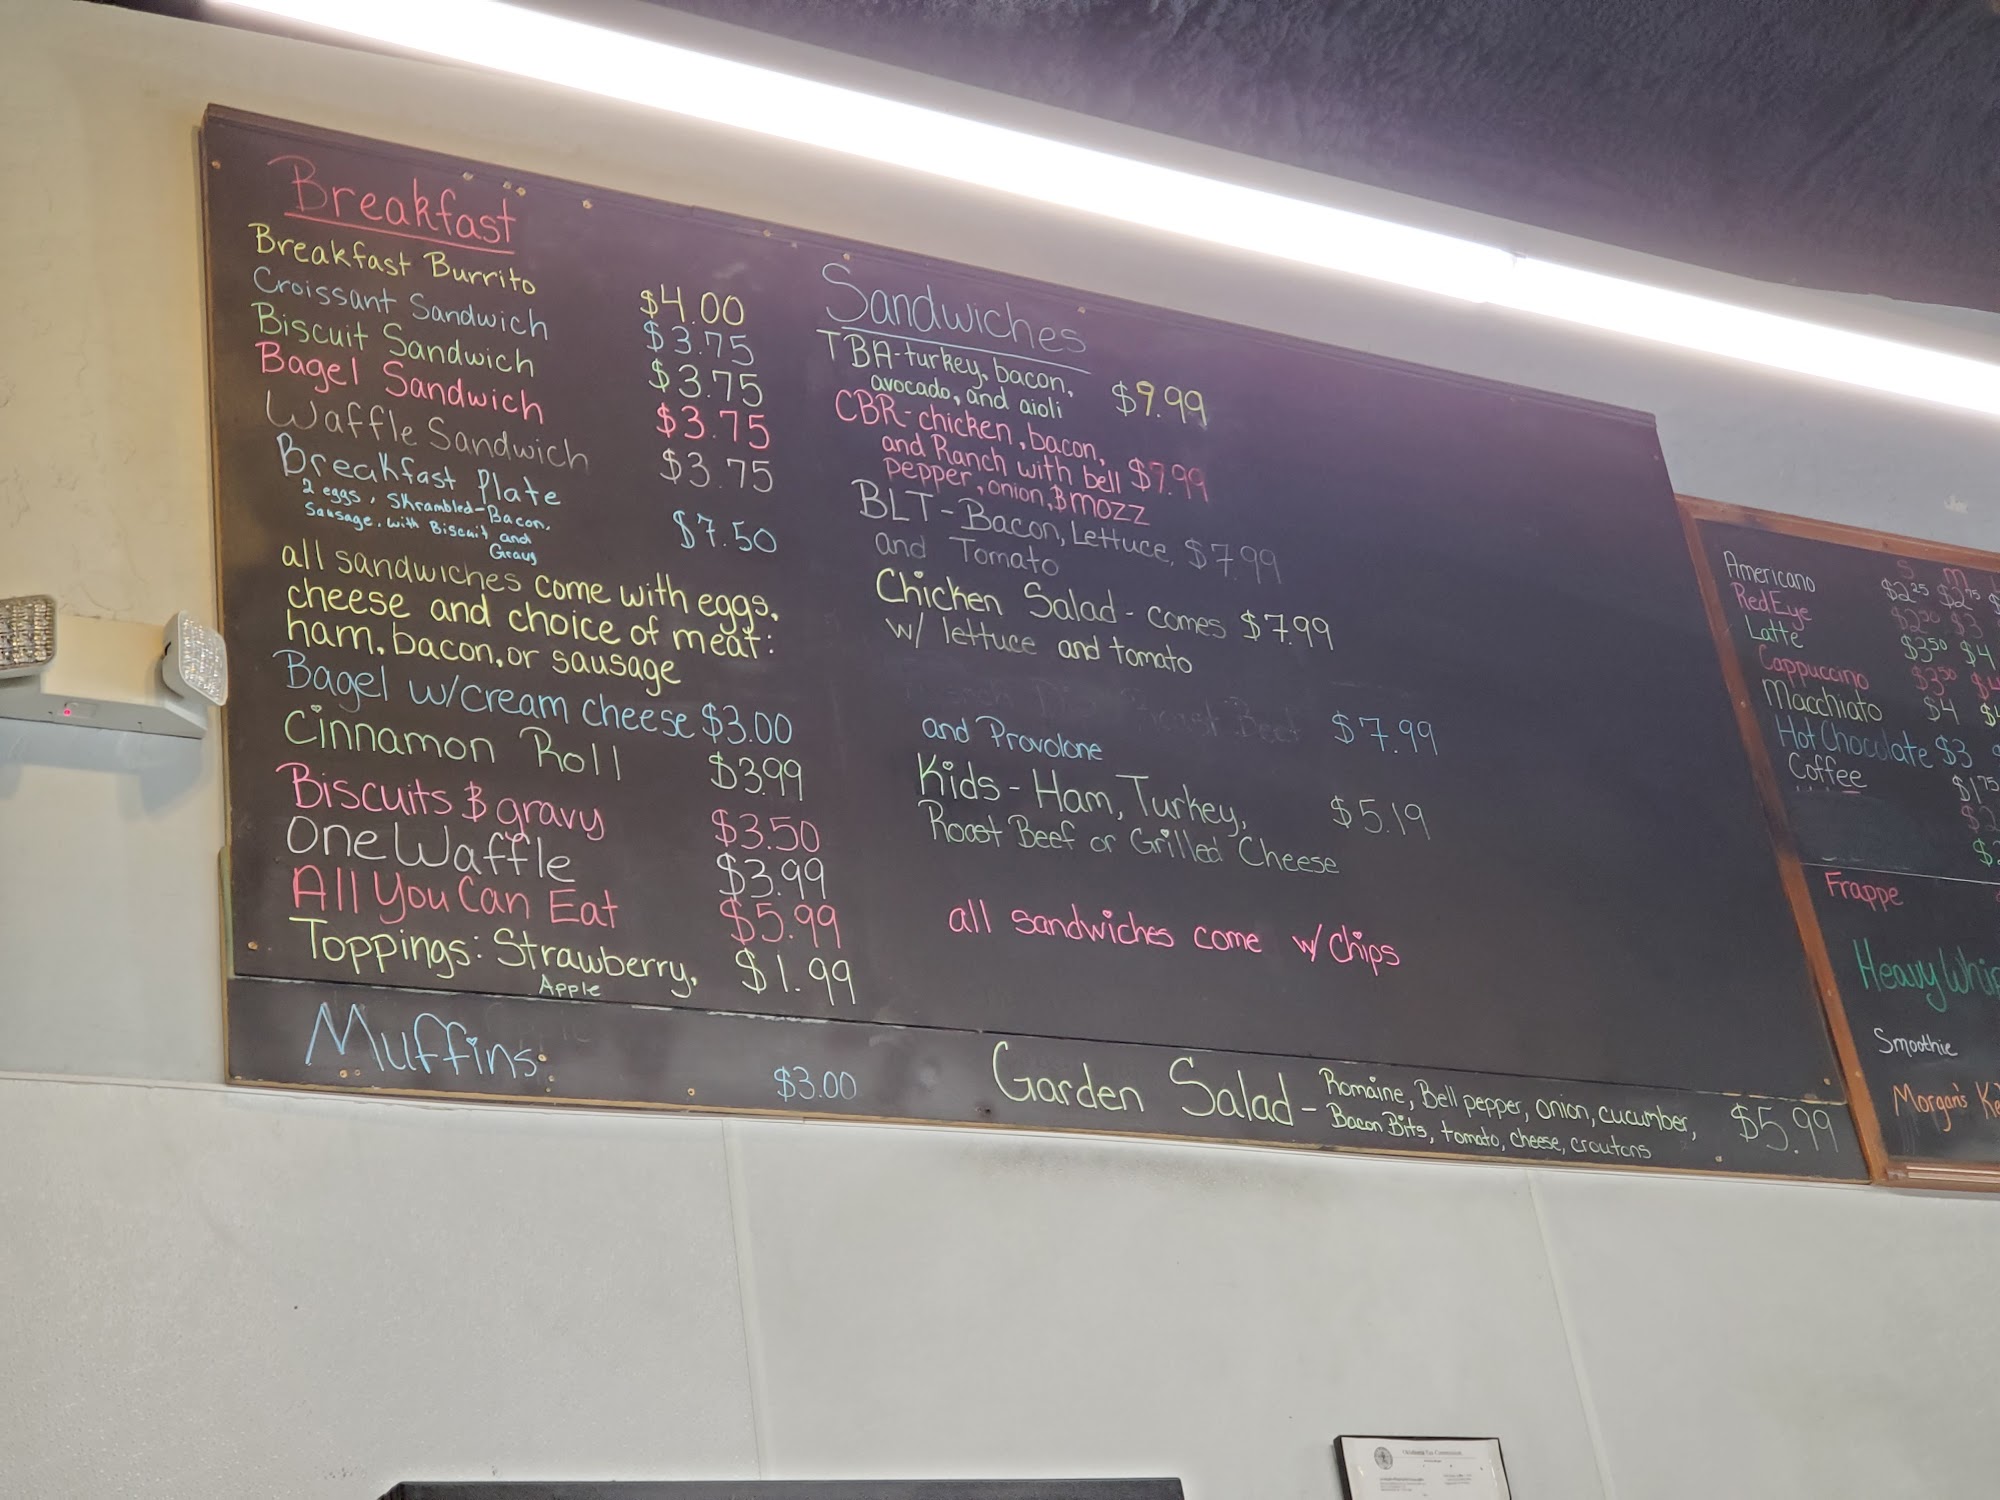 Breakfast
Breakfast Burrito $4.00
Croissant Sandwich $3.75
Biscuit Sandwich $3.75
Bagel Sandwich $3.75
Waffle Sandwich $3.75
Breakfast Plate
2 eggs, Skrambled-Bacon,
Sausage. with Biscuit and $7.50
Gravy
all sandwiches come with eggs,
cheese and choice of meat:
ham, bacon, or sausage
Bagel w/cream cheese $3.00
Cinnamon Roll $3.99
Biscuits & gravy $3.50
One Waffle $3.99
All You Can Eat $5.99
Toppings: Strawberry, $1.99
Apple
Muffins: $3.00
Sandwiches
TBA-turkey, bacon,
avocado, and aioli $9.99
CBR-chicken, bacon,
and Ranch with bell $7.99
pepper, onion, & mozz
BLT-Bacon, Lettuce, $7.99
and Tomato
Chicken Salad - comes $7.99
w/ lettuce and tomato
Roast Beef $7.99
and Provolone
Kids - Ham, Turkey, $5.19
Roast Beef or Grilled Cheese
all sandwiches come w/ Chips
Garden Salad - Romaine, Bell pepper, onion, cucumber,
Bacon Bits, tomato, cheese, croutons $5.99
S M
Americano $2.25 $2.75
RedEye $2.50 $3
Latte $3.50 $4
Cappuccino $3.50
Macchiato $4
Hot Chocolate $3
Coffee $1.75
Frappe
Heavy
Smoothie
Morgan's
Oklahoma Tax Commission